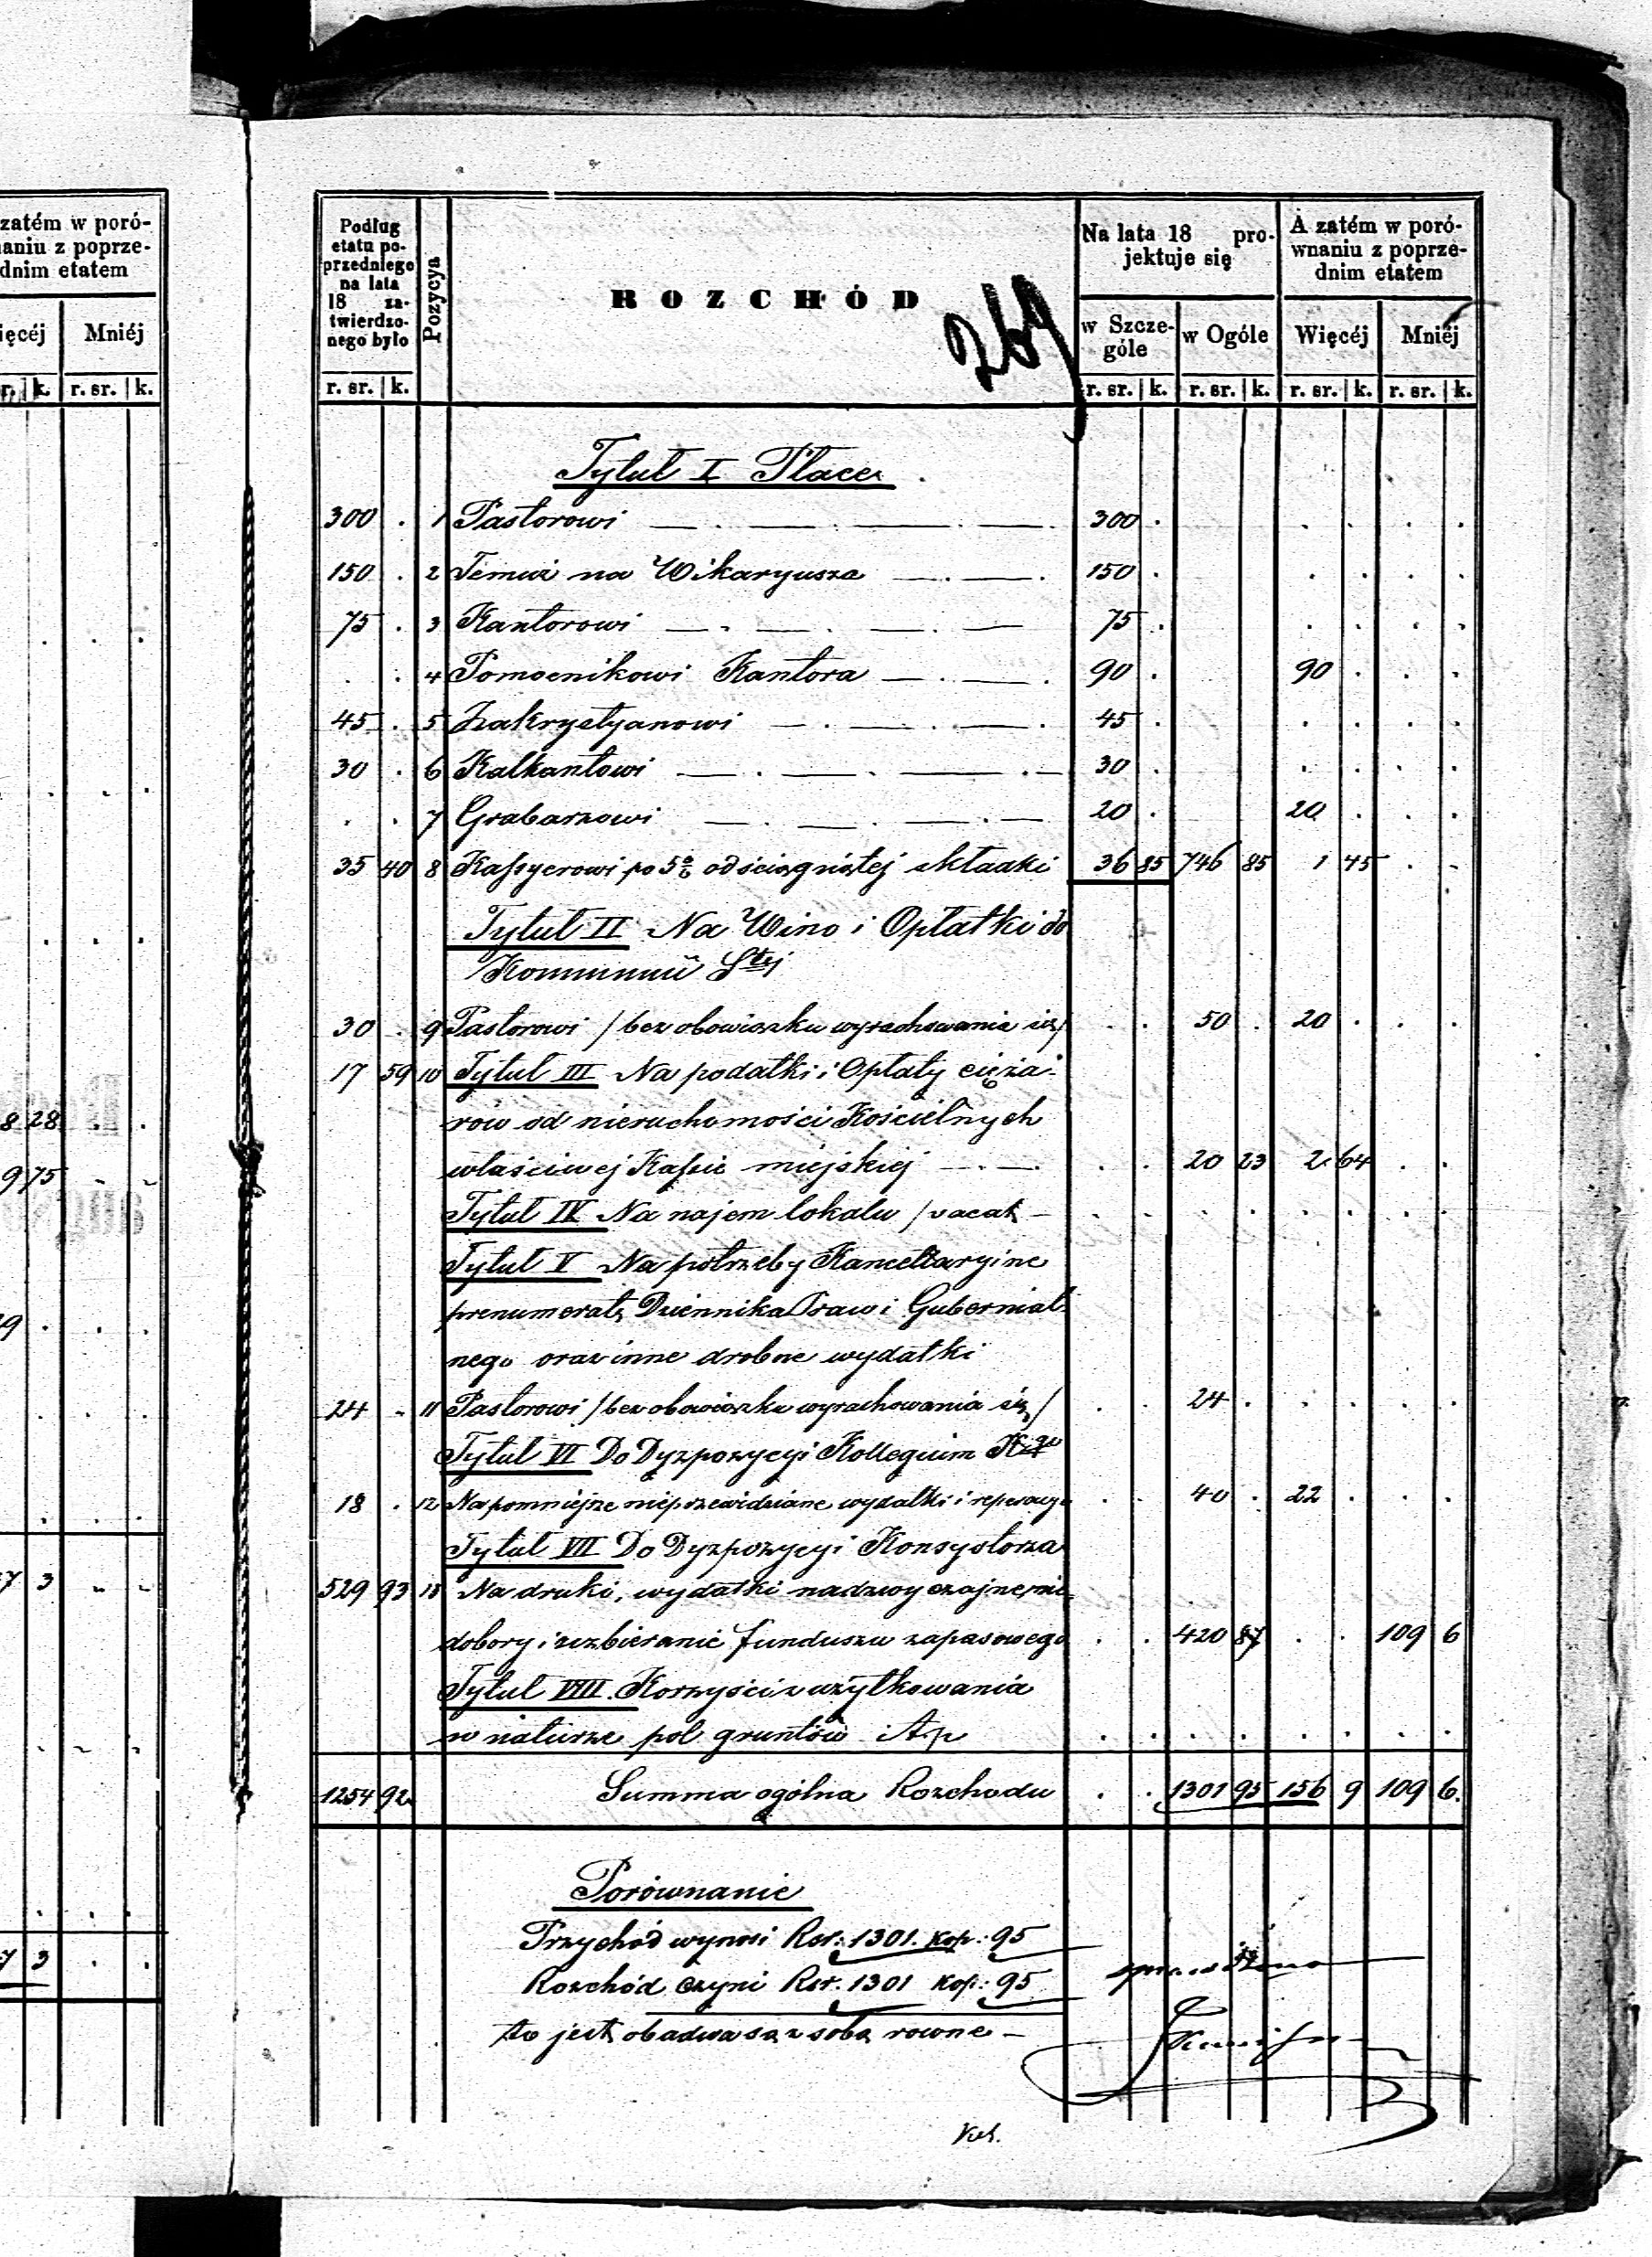 zatém w poró-
naniu z poprze-
dnim etatem
ięcéj Mniéj
r. k. r. sr. k.
8 28
9 75
9
7 3
7 3
Podług
etatu po-
przedniego
na lata
18 za-
twierdzo-
nego było
r. sr. k.
Pozycya
ROZCHÓD
269
Na lata 18 pro-
jektuje się
w Szcze-
góle
w Ogóle
r. sr. k. r. sr. k.
A zatém w poró-
wnaniu z poprze-
dnim etatem
Więcéj Mniéj
r. sr. k. r. sr. k.
Tytuł I Płace
300 . 1 Pastorowi 300 .
150 . 2 Temuż na Wikaryusza 150 .
75 . 3 Kantorowi 75 .
. . 4 Pomocnikowi Kantora 90 . 90 .
45 . 5 Zakrystyanowi 45 .
30 . 6 Kalkantowi 30 .
. . 7 Grabarzowi 20 . 20 .
35 40 8 Kassyerowi po 5% od ściągniętej składki 36 85 746 85 1 45
Tytuł II Na Wino i Opłatki do
Kommunii Stej
30 . 9 Pastorowi / bez obowiązku wyrachowania się / 50 . 20 .
17 59 10 Tytuł III Na podatki i Opłaty cięża-
rów od nieruchomości Kościelnych
właściwej Kassie miejskiej 20 23 2 64
Tytuł IV Na najem lokalu / vacat
Tytuł V Na potrzeby Kancellaryine
prenumeratę Dziennika Praw i Gubernial-
nego oraz inne drobne wydatki
24 . 11 Pastorowi / bez obowiązku wyrachowania się / 24 .
Tytuł VI Do Dyzpozycyi Kollegium Kgo
18 . 12 Na pomniejsze nieprzewidziane wydatki i reperacye 40 . 22 .
Tytuł VII Do Dyzpozycyi Konsystorza
529 93 13 Na druki, wydatki nadzwyczajne, nie-
dobory i uzbieranie funduszu zapasowego 420 87 109 6
Tytuł VIII Korzyści z użytkowania
w naturze pól gruntów itp
1254 92 Summa ogólna Rozchodu 1301 95 156 9 109 6.
Porównanie
Przychód wynosi Rsr. 1301. kop: 95
Rozchód czyni Rsr. 1301 kop: 95
to jest obadwa są z sobą równe